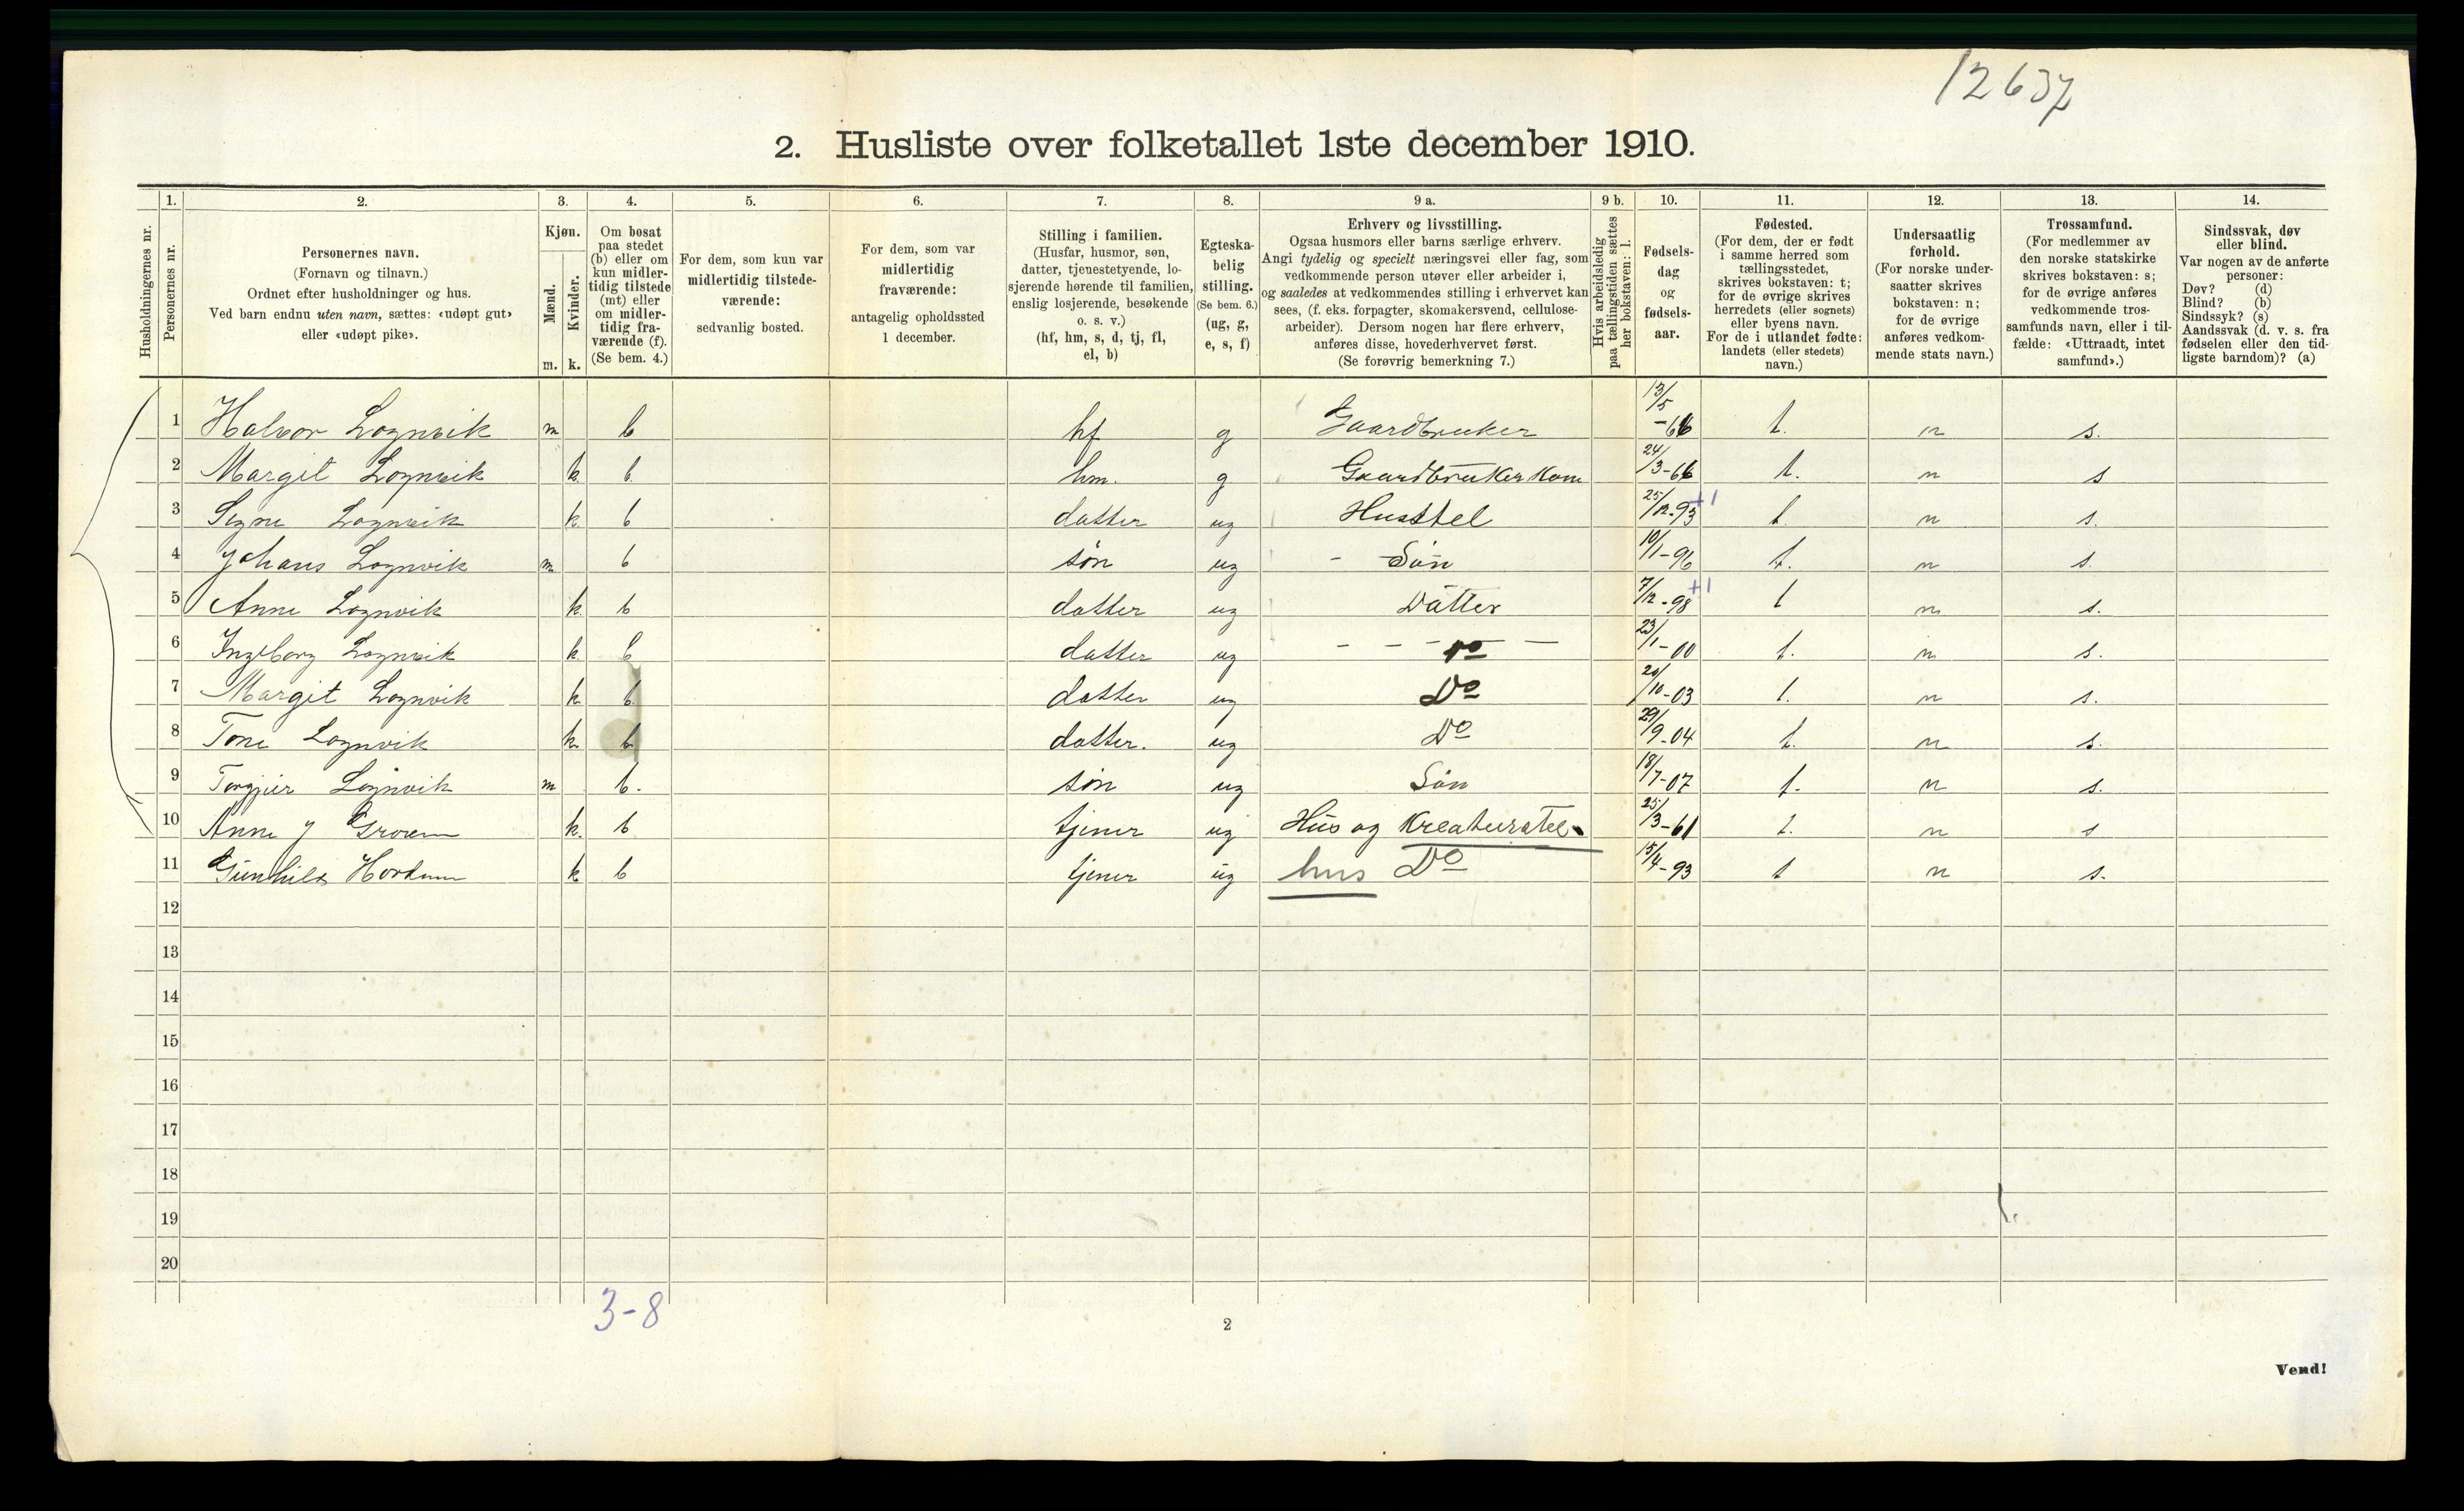 12637
2. Husliste over folketallet 1ste december 1910.
Husholdningernes nr.
1. Personernes nr.
2. Personernes navn.
(Fornavn og tilnavn.)
Ordnet efter husholdninger og hus.
Ved barn endnu uten navn, sættes: «udøpt gut»
eller «udøpt pike».
3. Kjøn.
Mænd. Kvinder.
m. k.
4. Om bosat
paa stedet
(b) eller om
kun midler-
tidig tilstede
(mt) eller
om midler-
tidig fra-
værende (f).
(Se bem. 4.)
5. For dem, som kun var
midlertidig tilstede-
værende:
sedvanlig bosted.
6. For dem, som var
midlertidig
fraværende:
antagelig opholdssted
1 december.
7. Stilling i familien.
(Husfar, husmor, søn,
datter, tjenestetyende, lo-
sjerende hørende til familien,
enslig losjerende, besøkende
o. s. v.)
(hf, hm, s, d, tj, fl,
el, b)
8. Egteska-
belig
stilling.
(Se bem. 6.)
(ug, g,
e, s, f)
9 a. Erhverv og livsstilling.
Ogsaa husmors eller barns særlige erhverv.
Angi tydelig og specielt næringsvei eller fag, som
vedkommende person utøver eller arbeider i,
og saaledes at vedkommendes stilling i erhvervet kan
sees, (f. eks. forpagter, skomakersvend, cellulose-
arbeider). Dersom nogen har flere erhverv,
anføres disse, hovederhvervet først.
(Se forøvrig bemerkning 7.)
9 b. Hvis arbeidsledig
paa tællingstiden sættes
her bokstaven: l.
10. Fødsels-
dag
og
fødsels-
aar.
11. Fødested.
(For dem, der er født
i samme herred som
tællingsstedet,
skrives bokstaven: t;
for de øvrige skrives
herredets (eller sognets)
eller byens navn.
For de i utlandet fødte:
landets (eller stedets)
navn.)
12. Undersaatlig
forhold.
(For norske under-
saatter skrives
bokstaven: n;
for de øvrige
anføres vedkom-
mende stats navn.)
13. Trossamfund.
(For medlemmer av
den norske statskirke
skrives bokstaven: s;
for de øvrige anføres
vedkommende tros-
samfunds navn, eller i til-
fælde: «Uttraadt, intet
samfund».)
14. Sindssvak, døv
eller blind.
Var nogen av de anførte
personer:
Døv? (d)
Blind? (b)
Sindssyk? (s)
Aandssvak (d. v. s. fra
fødselen eller den tid-
ligste barndom)? (a)
1 Halvor Lognvik m b hf g Gaardbruker 13/5 -66 t. n s.
2 Margit Lognvik k. b. hm. g Gaardbrukerkone 24/3-66 t. n s
3 Signe Lognvik k. b datter ug Husstel 25/12-93 +1 t. n s.
4 Johans Lognvik m b søn ug - Søn 10/1-96 t. n s.
5 Anne Lognvik k. b datter ug Datter 7/12-98 +1 t n s.
6 Ingeborg Lognvik k. b datter ug - - - Do - 23/1-00 t. n s.
7 Margit Lognvik k. b. datter ug Do 20/10-03 t. n s.
8 Tone Lognvik k. b datter. ug Do 29/9-04 t. n s.
9 Torgjus Lognvik m b. søn ug Søn 18/7-07 t. n s.
10 Anne J Groven k. b tjener ug Hus og Kreaturstel 25/3-61 t. n s
11 Gunhild k b tjener ug hus Do 15/4-93 t n s.
12
13
14
15
16
17
18
19
20
3-8
2
Vend!